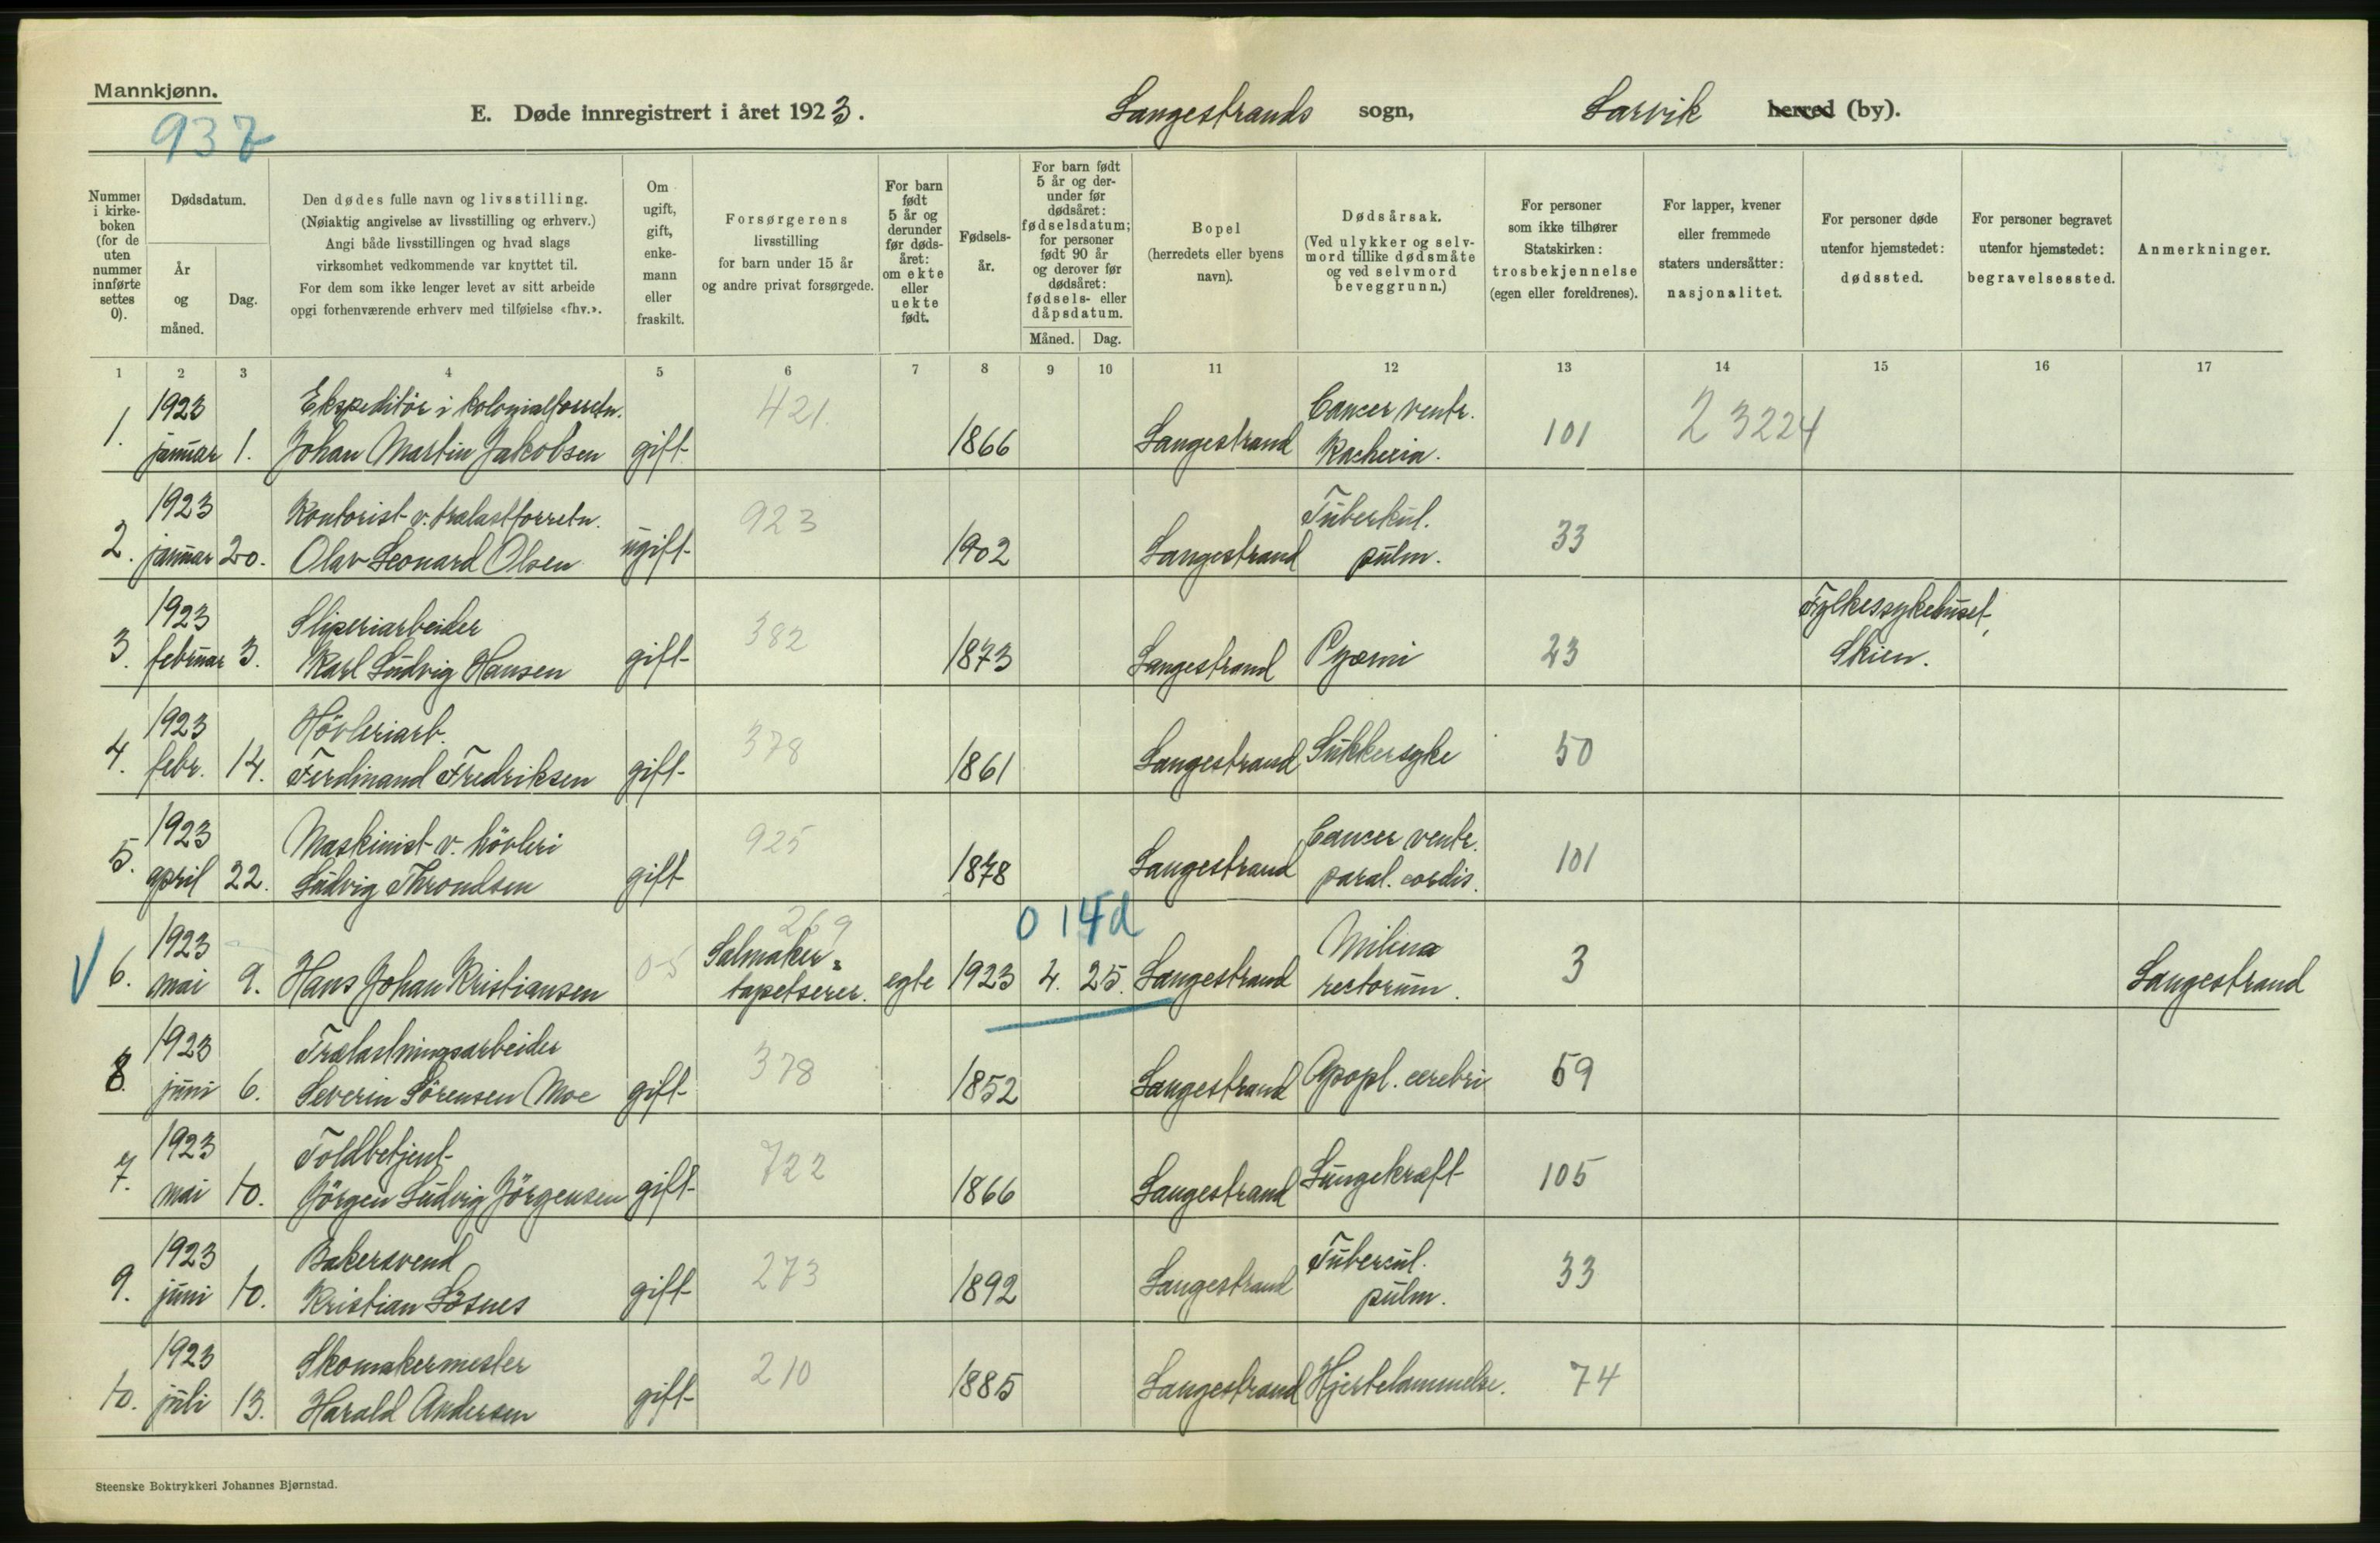 Mannkjønn.
E. Døde innregistrert i året 1923. Langestrands sogn, Larvik herred (by).
937
Nummer i kirke-boken (for de uten nummer innførte settes 0).
Dødsdatum.
År og måned.
Dag.
Den dødes fulle navn og livsstilling.
(Nøiaktig angivelse av livsstilling og erhverv.)
Angi både livsstillingen og hvad slags
virksomhet vedkommende var knyttet til.
For dem som ikke lenger levet av sitt arbeide
opgi forhenværende erhverv med tilføielse «fhv.».
Om ugift, gift, enke-mann eller fraskilt.
Forsørgerens
livsstilling
for barn under 15 år
og andre privat forsørgede.
For barn født 5 år og derunder før døds-året: om ekte eller uekte født.
Fødsels-år.
For barn født 5 år og der-under før dødsåret: fødselsdatum; for personer født 90 år og derover før dødsåret: fødsels- eller dåpsdatum.
Måned. Dag.
Bopel
(herredets eller byens
navn).
Dødsårsak.
(Ved ulykker og selv-
mord tillike dødsmåte
og ved selvmord
beveggrunn.)
For personer
som ikke tilhører
Statskirken:
trosbekjennelse
(egen eller foreldrenes).
For lapper, kvener
eller fremmede
staters undersåtter:
nasjonalitet.
For personer døde
utenfor hjemstedet:
dødssted.
For personer begravet
utenfor hjemstedet:
begravelsessted.
Anmerkninger.
1 2 3 4 5 6 7 8 9 10 11 12 13 14 15 16 17
1923 Ekspeditör i kolonialforretn. 421. Cancer ventr. 2 3224
1. januar 1. Johan Martin Jakobsen gift 1866 Langestrand Kachexia. 101
1923 Kontorist v. trælastforretn. 923 Tuberkul.
2. januar 20. Olav Leonard Olsen ugift 1902 Langestrand pulm. 33
1923 Sliperiarbeider 382 Fylkessykehuset,
3. februar 3. Karl Ludvig Hansen gift 1873 Langestrand Pyæmi 23 Skien.
1923 Hövleriarb. 378
4. febr. 14. Ferdinand Fredriksen gift 1861 Langestrand Sukkersyke 50
1923 Maskinist v. hövleri 925 Cancer ventr.
5. april 22. Ludvig Throndsen gift 1878 Langestrand paral. cordis. 101
269 0 14d
1923 Salmaker &
V 6. mai 9. Hans Johan Kristiansen 05 tapetserer. egte 1923 4. 25. Langestrand rectorum. 3 Langestrand
1923 Trælastningsarbeider 378
8. juni 6. Severin Sörensen Moe gift 1852 Langestrand Apopl. cerebri 59
1923 Toldbetjent 722
7. mai 10. Jörgen Ludvig Jörgensen gift 1866 Langestrand Lungekræft 105
1923 Bakersvend 273 Tubercul.
9. juni 10. Kristian Lösnes gift 1892 Langestrand pulm. 33
1923 Skomakermester 210
10. juli 13. Harald Andersen gift 1885 Langestrand Hjertelammelse. 74
Steenske Boktrykkeri Johannes Bjørnstad.